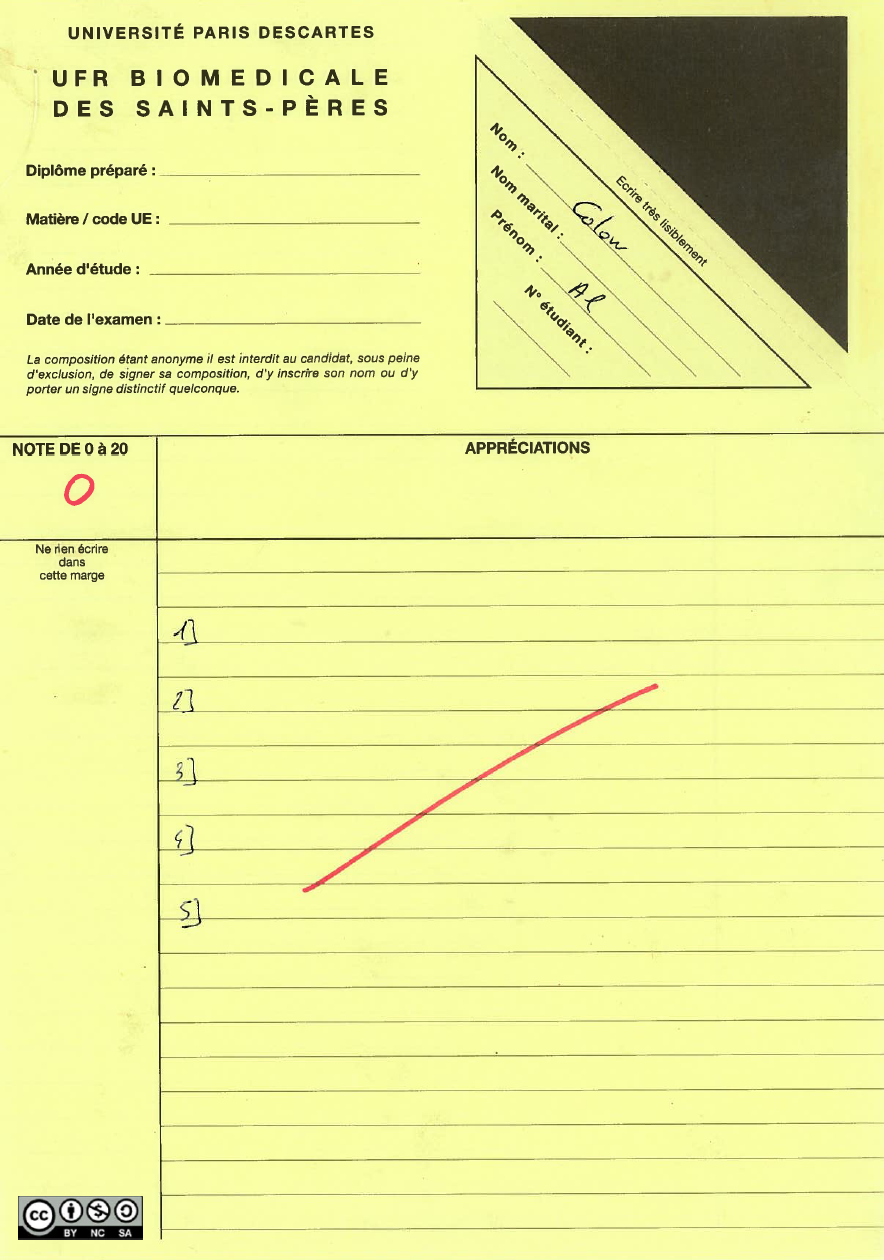 UNIVERSITÉ PARIS DESCARTES
UFR BIOMEDICALE
DES SAINTS-PÈRES
Diplôme préparé :
Matière / code UE :
Année d'étude :
Date de l'examen :
La composition étant anonyme il est interdit au candidat, sous peine
d'exclusion, de signer sa composition, d'y inscrire son nom ou d'y
porter un signe distinctif quelconque.
Nom : Colow
Nom marital :
Prénom : Al
N° étudiant :
Ecrire très lisiblement
NOTE DE 0 à 20
0
APPRÉCIATIONS
Ne rien écrire
dans
cette marge
1]
2]
3]
4]
5]
cc BY NC SA